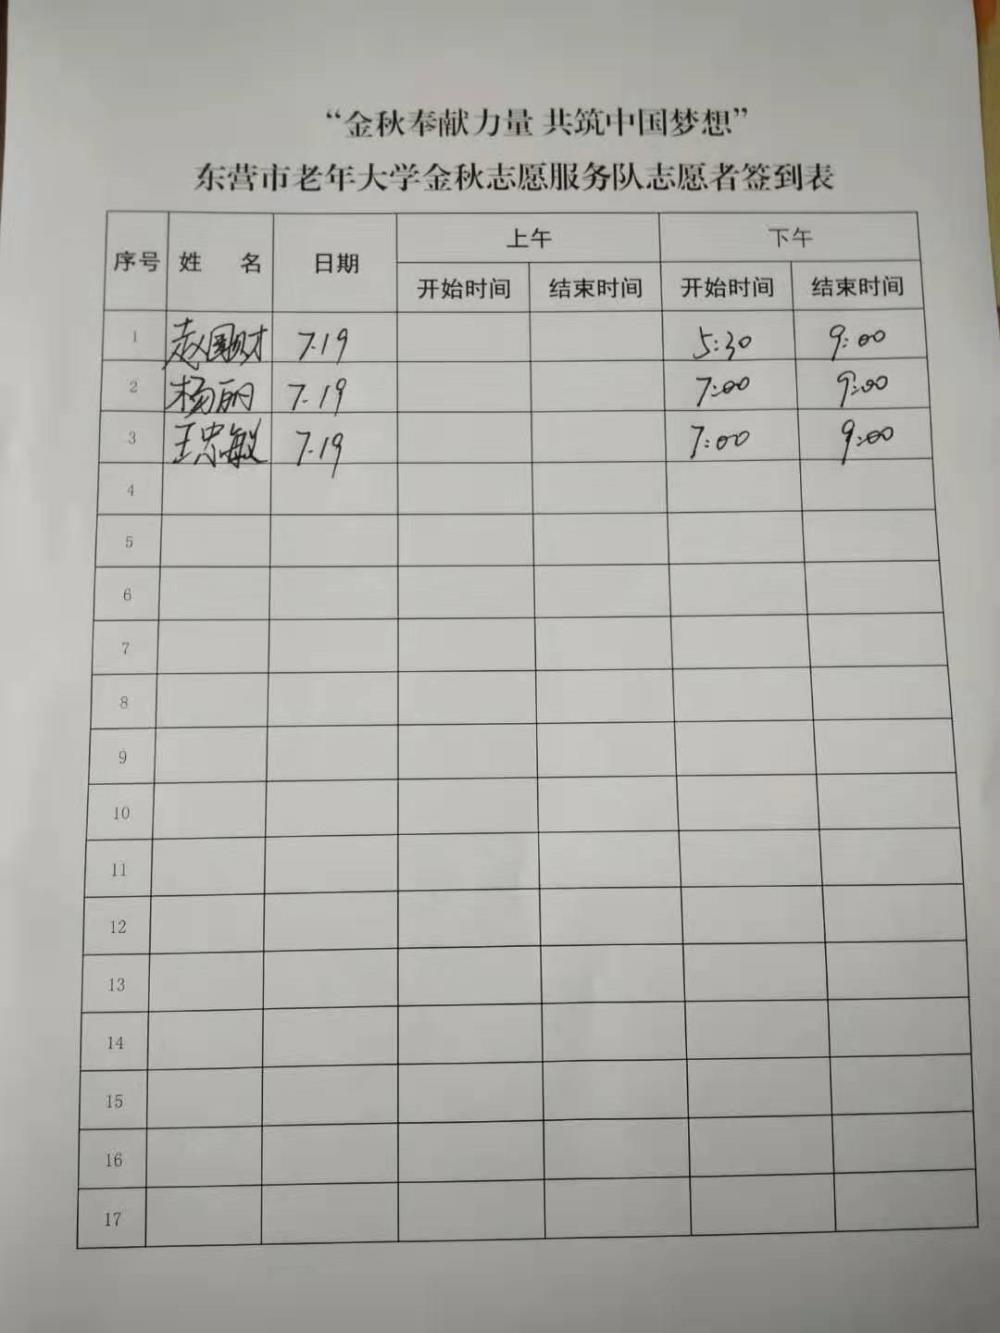 “金秋奉献力量 共筑中国梦想”
东营市老年大学金秋志愿服务队志愿者签到表
序号 姓 名 日期 上午 下午
开始时间 结束时间 开始时间 结束时间
1 赵国财 7.19 5:30 9:00
2 杨丽 7.19 7:00 9:00
3 王忠敏 7.19 7:00 9:00
4
5
6
7
8
9
10
11
12
13
14
15
16
17